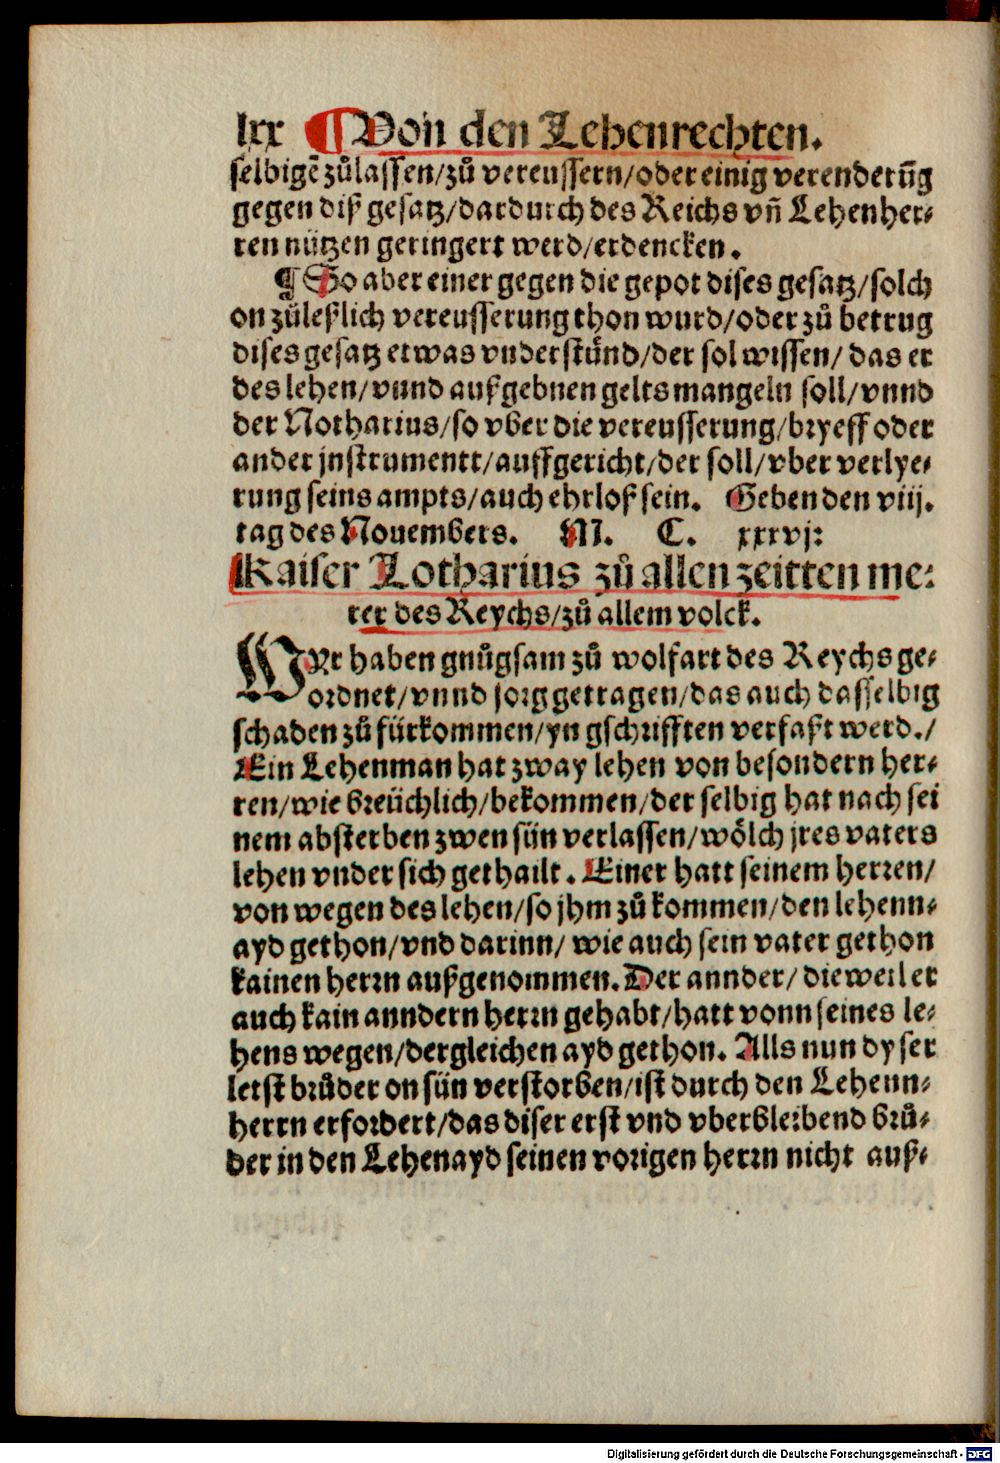 lxx ¶ Von den Lehenrechten.
selbigē zůlassen/zů vereussern/oder einig verenderūg
gegen diß gesatz/dardurch des Reichs vñ Lehenher⸗
ren nützen geringert werd/erdencken.
¶ So aber einer gegen die gepot dises gesatz/solch
on zůleßlich vereusserung thon wurd/oder zů betrug
dises gesatz etwas vnderstůnd/der sol wissen/ das er
des lehen/vnnd außgebnen gelts mangeln soll/vnnd
der Notharius/so vber die vereusserung/bryeff oder
ander jnstrumentt/auffgericht/der soll/vber verlye⸗
rung seins ampts/auch ehrloß sein. Geben den viij.
tag des Nouembers. M. C. xxxvj:
Kaiser Lotharius zů allen zeitten me:
rer des Reychs/zů allem volck.
WYr haben gnůgsam zů wolfart des Reychs ge⸗
ordnet/vnnd sorg getragen/das auch dasselbig
schaden zů fürkommen/yn gschrifften verfaßt werd./
Ein Lehenman hat zway lehen von besondern her⸗
ren/wie breüchlich/bekommen/der selbig hat nach sei
nem absterben zwen sün verlassen/wölch jres vaters
lehen vnder sich gethailt. Einer hatt seinem herren/
von wegen des lehen/so jhm zů kommen/den lehenn⸗
ayd gethon/vnd darinn/ wie auch sein vater gethon
kainen herrn außgenommen. Der annder/ dieweil er
auch kain anndern herrn gehabt/hatt vonn seines le⸗
hens wegen/dergleichen ayd gethon. Alls nun dyser
letst brůder on sün verstorben/ist durch den Lehenn⸗
herrn erfordert/das diser erst vnd vberbleibend brů⸗
der in den Lehenayd seinen vorigen herrn nicht auß⸗
Digitalisierung gefördert durch die Deutsche Forschungsgemeinschaft - DFG